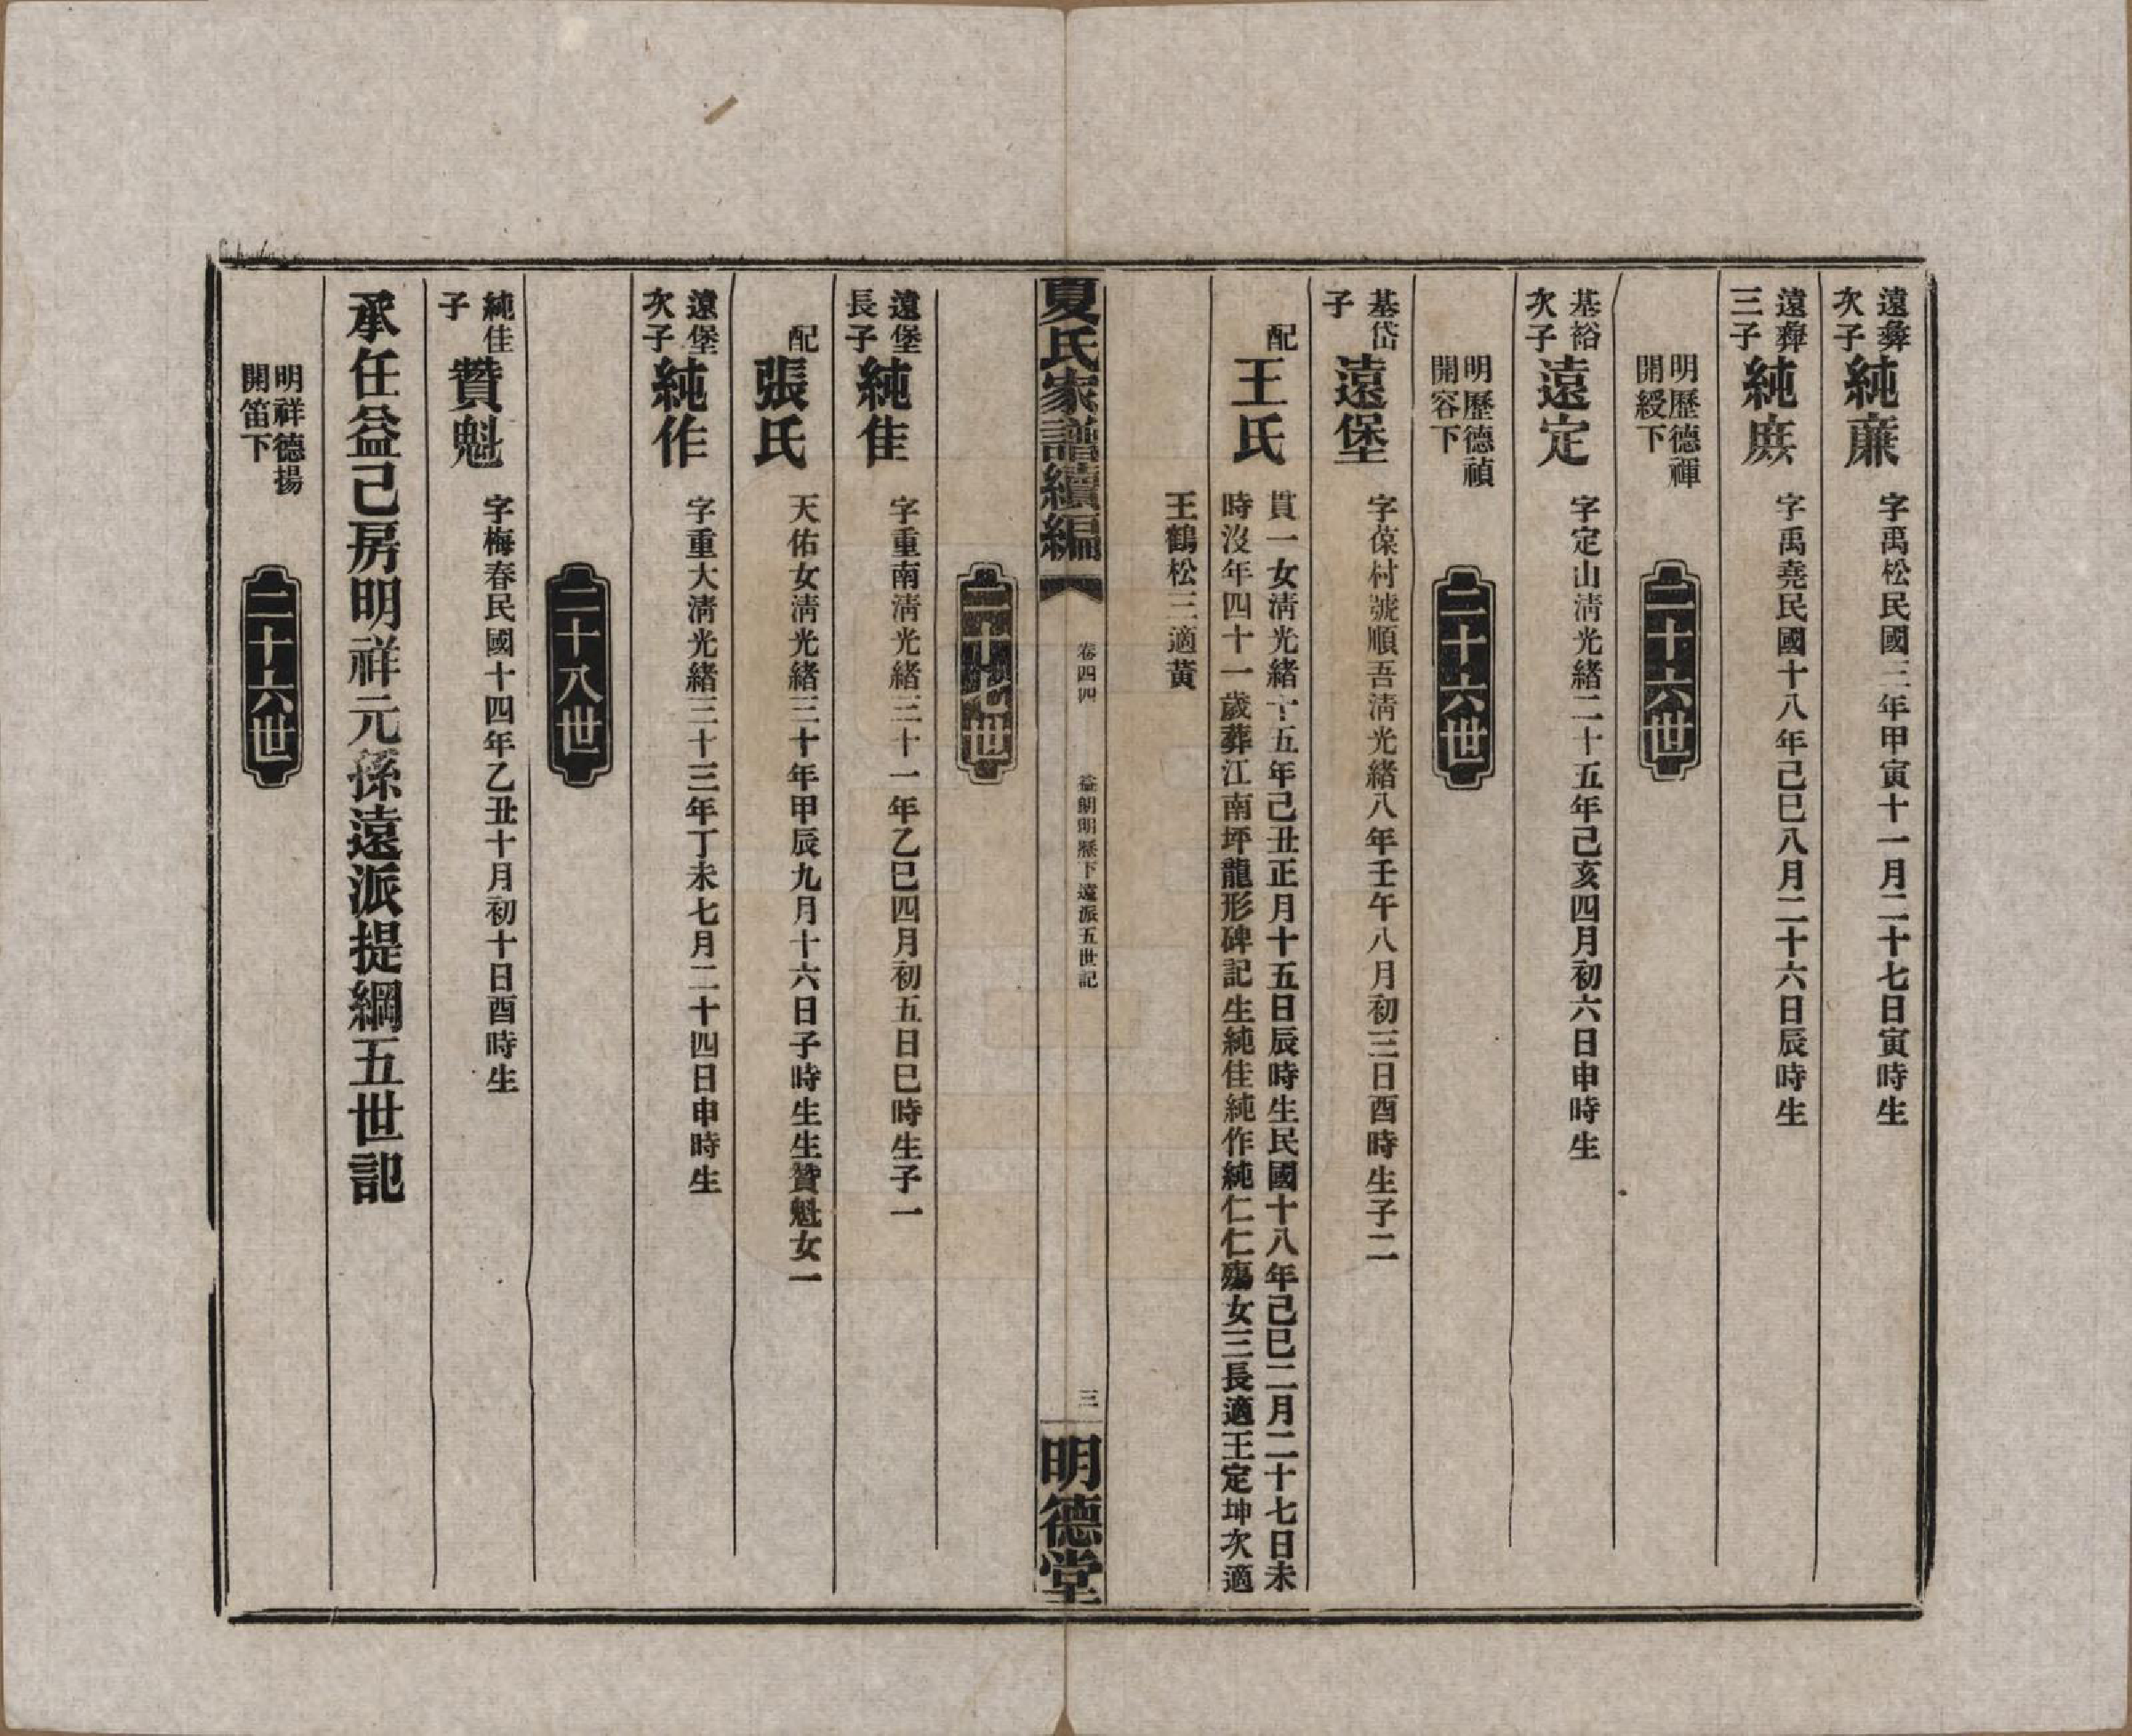 遠彝
次子
純蔗
字禹松民國三年甲寅十一月二十七日寅時生
遠彝
三子
純庶
字禹堯民國十八年己巳八月二十六日辰時生
明歷德禪
開綬下
二十六世
基裕
次子
遠定
字定山淸光緒二十五年己亥四月初六日申時生
明歷德禎
開容下
二十六世
基岱
子
遠堡
字葆村號順吾淸光緒八年壬午八月初三日酉時生子二
配
王氏
貫一女淸光緒十五年己丑正月十五日辰時生民國十八年己巳二月二十七日未
時沒年四十一歲葬江南坪龍形碑記生純佳純作純仁仁殤女三長適王定坤次適
王鶴松三適黃
夏氏家譜續編
卷四四
益朝明歷下遠派五世記
三
明德堂
二十七世
遠堡
長子
純佳
字重南淸光緒三十一年乙巳四月初五日巳時生子一
配
張氏
天佑女淸光緒三十年甲辰九月十六日子時生生贊魁女一
遠堡
次子
純作
字重大淸光緒三十三年丁未七月二十四日申時生
二十八世
純佳
子
贊魁
字梅春民國十四年乙丑十月初十日酉時生
承任益己房明祥元孫遠派提綱五世記
明祥德揚
開笛下
二十六世